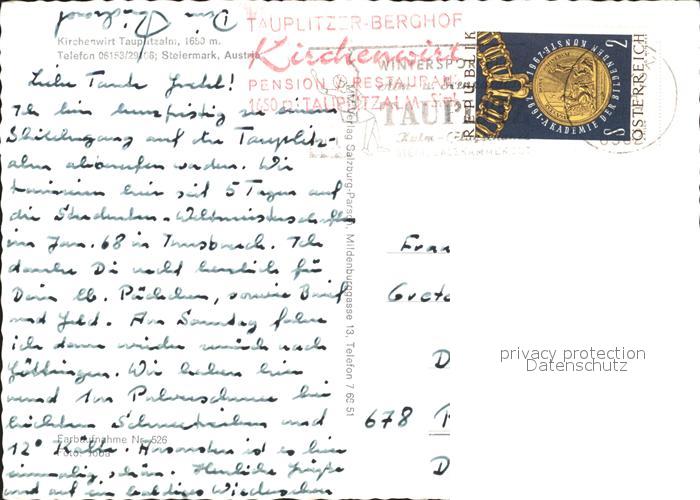 Dein
TAUPLITZER-BERGHOF
Kirchenwirt
PENSION RESTAURANT
1650 m TAUPLITZALM
Kirchenwirt Tauplitzalm, 1650 m.
Telefon 06153/29/06; Steiermark, Austria
WINTERSPO
TAUP
REPUBLIK
ÖSTERREICH
S 2
1692-1967 · AKADEMIE DER BILDENDEN KÜNSTE
Liebe Tante Gretel!
Ich bin kurzfristig zu einem
Skilehrgang auf die Tauplitz-
alm abberufen worden. Wir
trainieren hier seit 5 Tagen auf
die Studenten-Weltmeisterschaft
im Jan. 68 in Innsbruck. Ich
danke Dir recht herzlich für
Dein lb. Päckchen, sowie Brief
und Geld. Am Samstag fahre
ich dann wieder zurück nach
Göttingen. Wir haben hier
rund 1m Pulverschnee bei
leichtem Schneetreiben und
12° Kälte. Ansonsten ist es hier
einmalig schön. Herzliche Grüße
und auf ein baldiges Wiedersehen
Farbaufnahme Nr. 526
Verlag Salzburg-Parsch, Mildenburggasse 13, Telefon 7 62 51
Frau
Grete
D
678
D
privacy protection
Datenschutz